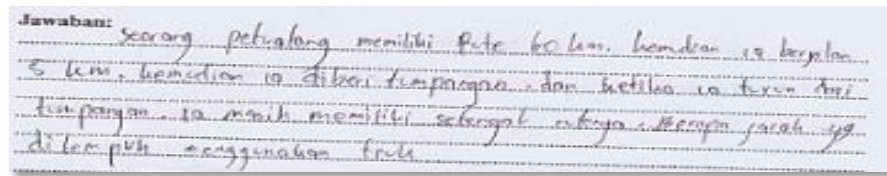 Jawaban:
seorang petualang memiliki Rute 60 km. kemdian ia berjalan
5 km, kemudian ia diberi tumpangan. dan ketika ia turun dari
tumpangan. ia masih memiliki setengat rutenya. Berapa jarak yg
di tempuh menggunakan truk